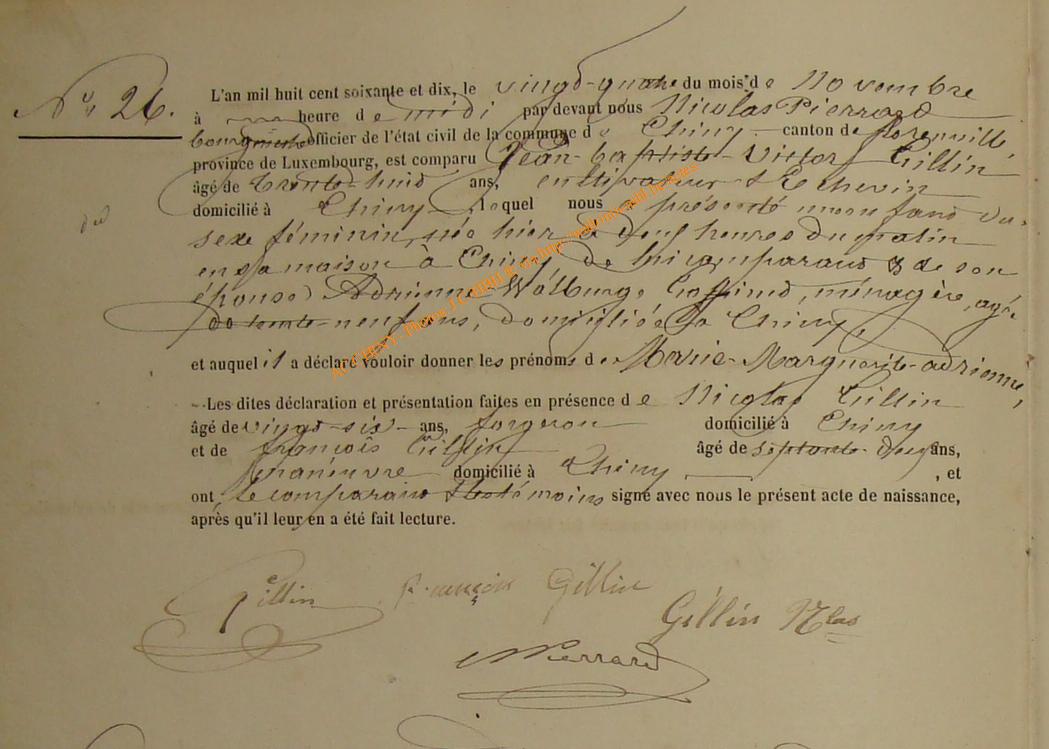 N° 26.
L'an mil huit cent soixante et dix, le vingt-quatre du mois d e novembre
à heure d e midi par devant nous Nicolas Pierrard
bourgmestre officier de l'état civil de la commune d e Chiny canton de Florenville
province de Luxembourg, est comparu Jean-baptiste-Victor Gillin
âgé de trente-huit ans, cultivateur & Echevin
domicilié à Chiny lequel nous a présenté un enfant du
sexe féminin, née hier à deux heures du matin
en sa maison à Chiny, de lui comparant & de son
épouse Adrienne-Walburge, ménagère, agée
de trente-neuf ans, domiciliée à Chiny,
et auquel il a déclaré vouloir donner les prénoms de Marie-Marguerite-adrienne,
Les dites déclaration et présentation faites en présence d e Nicolas Gillin
âgé de vingt-six ans, forgeron domicilié à Chiny
et de françois Gillin âgé de septante-deux ans,
manœuvre domicilié à Chiny, et
ont le comparant & les témoins signé avec nous le présent acte de naissance,
après qu'il leur en a été fait lecture.
Gillin françois Gillin
Gillin Nlas
Pierrard